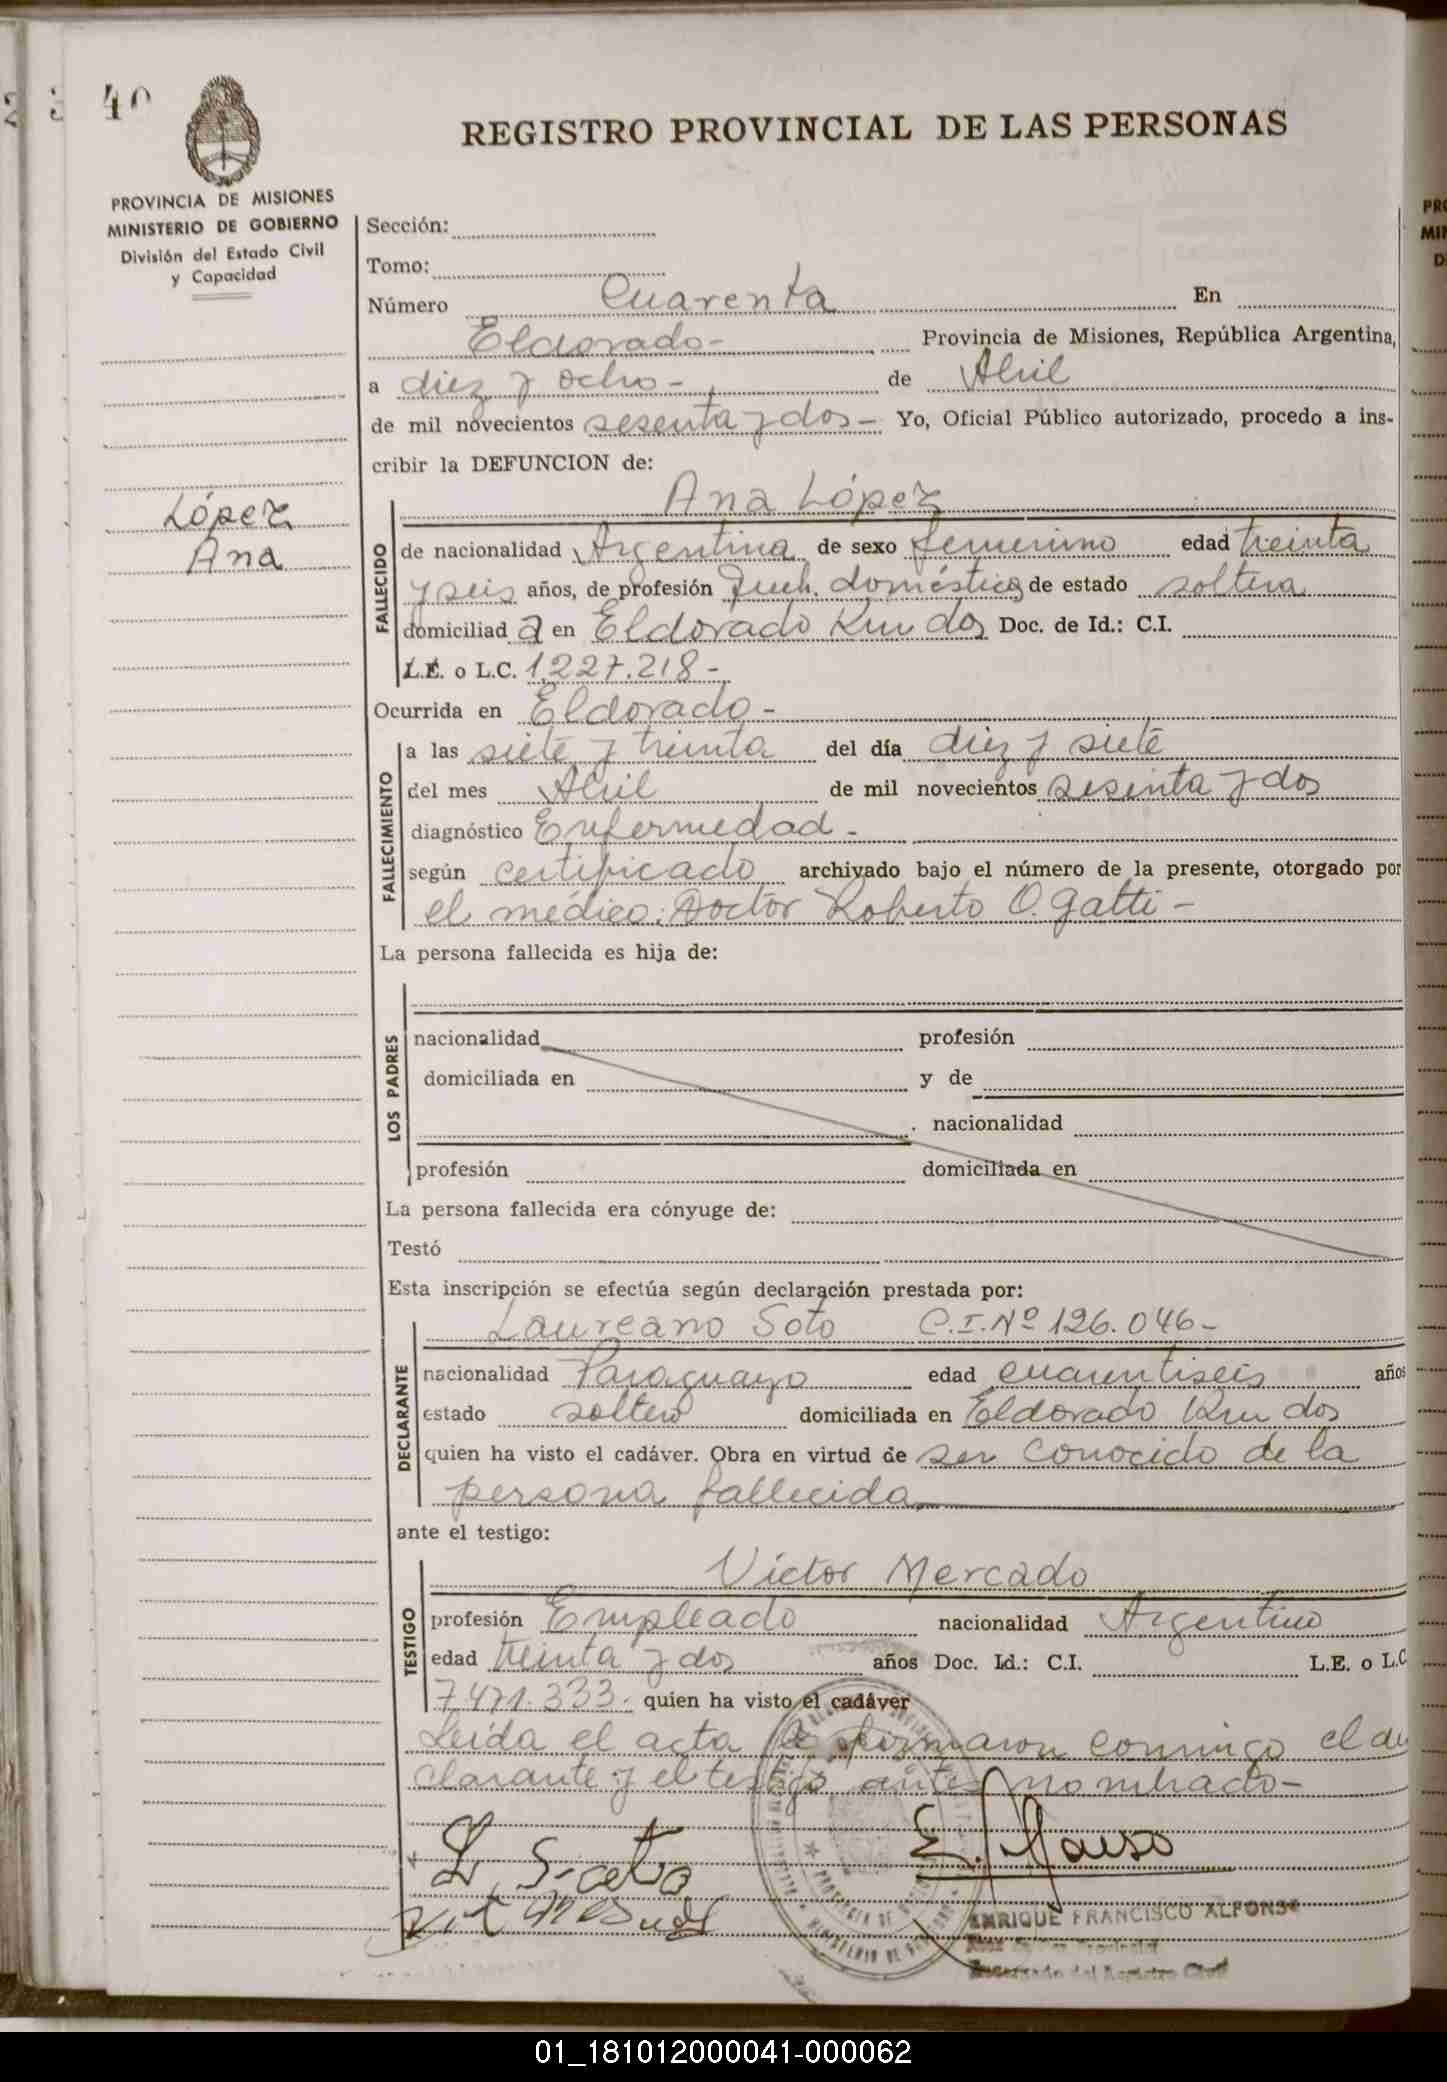 40
REGISTRO PROVINCIAL DE LAS PERSONAS
PROVINCIA DE MISIONES
MINISTERIO DE GOBIERNO
División del Estado Civil
y Capacidad
Sección:
Tomo:
Número Cuarenta En
Eldorado- Provincia de Misiones, República Argentina,
a diez y ocho- de Abril
de mil novecientos sesenta y dos- Yo, Oficial Público autorizado, procedo a ins-
cribir la DEFUNCION de:
López
Ana
Ana López
FALLECIDO
de nacionalidad Argentina de sexo femenino edad treinta
y seis años, de profesión Queh. domésticos de estado soltera
domiciliada en Eldorado Km dos Doc. de Id.: C.I.
L.E. o L.C. 1.227.218-
Ocurrida en Eldorado-
FALLECIMIENTO
a las siete y treinta del día diez y siete
del mes Abril de mil novecientos sesenta y dos
diagnóstico Enfermedad-
según certificado archivado bajo el número de la presente, otorgado por
el médico: Doctor Roberto O. Gatti-
La persona fallecida es hija de:
LOS PADRES
nacionalidad profesión
domiciliada en y de
nacionalidad
profesión domiciliada en
La persona fallecida era cónyuge de:
Testó
Esta inscripción se efectúa según declaración prestada por:
DECLARANTE
Laureano Soto C.I.Nº 126.046-
nacionalidad Paraguayo edad cuarentiseis años
estado soltero domiciliada en Eldorado Km dos
quien ha visto el cadáver. Obra en virtud de ser conocido de la
persona fallecida
ante el testigo:
TESTIGO
Víctor Mercado
profesión Empleado nacionalidad Argentino
edad treinta y dos años Doc. Id.: C.I. L.E. o L.C
7.471.333. quien ha visto el cadáver
Leída el acta la firmaron conmigo el de
clarante y el testigo antes nombrado-
E. Alfonso
ENRIQUE FRANCISCO ALFONSO
Encargado del Registro Civil
01_181012000041-000062